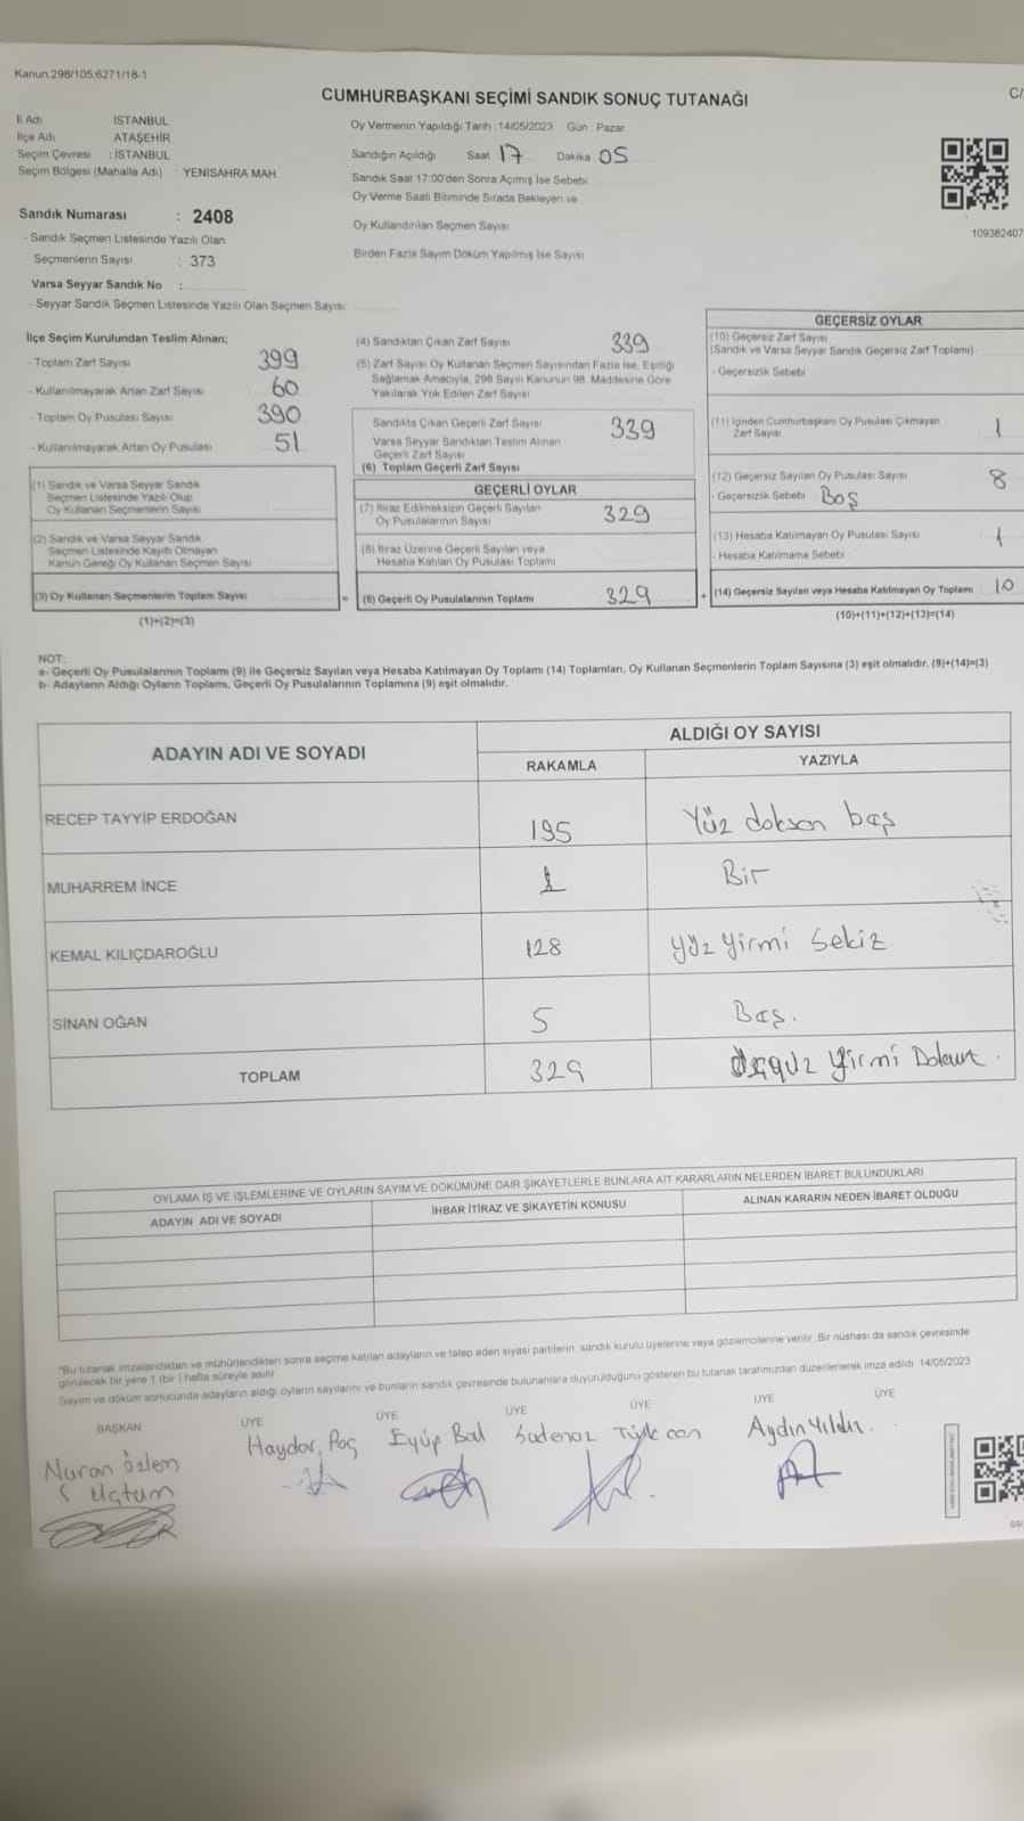 Kanun.298/105;6271/18-1
CUMHURBAŞKANI SEÇİMİ SANDIK SONUÇ TUTANAĞI
C/
İl Adı : İSTANBUL
İlçe Adı : ATAŞEHİR
Seçim Çevresi : İSTANBUL
Seçim Bölgesi (Mahalle Adı) : YENİSAHRA MAH.
Sandık Numarası : 2408
- Sandık Seçmen Listesinde Yazılı Olan
Seçmenlerin Sayısı : 373
Varsa Seyyar Sandık No :
- Seyyar Sandık Seçmen Listesinde Yazılı Olan Seçmen Sayısı:
Oy Vermenin Yapıldığı Tarih :14/05/2023 Gün : Pazar
Sandığın Açıldığı Saat 17 Dakika 05
Sandık Saat 17:00'den Sonra Açılmış İse Sebebi
Oy Verme Saati Bitiminde Sırada Bekleyen ve
Oy Kullandırılan Seçmen Sayısı
Birden Fazla Sayım Döküm Yapılmış İse Sayısı
109382407
İlçe Seçim Kurulundan Teslim Alınan;
- Toplam Zarf Sayısı 399
- Kullanılmayarak Artan Zarf Sayısı 60
- Toplam Oy Pusulası Sayısı 390
- Kullanılmayarak Artan Oy Pusulası 51
(1) Sandık ve Varsa Seyyar Sandık
Seçmen Listesinde Yazılı Olup
Oy Kullanan Seçmenlerin Sayısı
(2) Sandık ve Varsa Seyyar Sandık
Seçmen Listesinde Kayıtlı Olmayan
Kanun Gereği Oy Kullanan Seçmen Sayısı
(3) Oy Kullanan Seçmenlerin Toplam Sayısı
(1)+(2)=(3)
(4) Sandıktan Çıkan Zarf Sayısı 339
(5) Zarf Sayısı Oy Kullanan Seçmen Sayısından Fazla İse, Eşitliği
Sağlamak Amacıyla, 298 Sayılı Kanunun 98. Maddesine Göre
Yakılarak Yok Edilen Zarf Sayısı
Sandıkta Çıkan Geçerli Zarf Sayısı 339
Varsa Seyyar Sandıktan Teslim Alınan
Geçerli Zarf Sayısı
(6) Toplam Geçerli Zarf Sayısı
GEÇERLİ OYLAR
(7) İtiraz Edilmeksizin Geçerli Sayılan
Oy Pusulalarının Sayısı 329
(8) İtiraz Üzerine Geçerli Sayılan veya
Hesaba Katılan Oy Pusulası Toplamı
= (9) Geçerli Oy Pusulalarının Toplamı 329
GEÇERSİZ OYLAR
(10) Geçersiz Zarf Sayısı
(Sandık ve Varsa Seyyar Sandık Geçersiz Zarf Toplamı)
- Geçersizlik Sebebi
(11) İçinden Cumhurbaşkanı Oy Pusulası Çıkmayan
Zarf Sayısı 1
(12) Geçersiz Sayılan Oy Pusulası Sayısı 8
- Geçersizlik Sebebi Boş
(13) Hesaba Katılmayan Oy Pusulası Sayısı 1
- Hesaba Katılmama Sebebi
+ (14) Geçersiz Sayılan veya Hesaba Katılmayan Oy Toplamı 10
(10)+(11)+(12)+(13)=(14)
NOT:
a- Geçerli Oy Pusulalarının Toplamı (9) ile Geçersiz Sayılan veya Hesaba Katılmayan Oy Toplamı (14) Toplamları, Oy Kullanan Seçmenlerin Toplam Sayısına (3) eşit olmalıdır. (9)+(14)=(3)
b- Adayların Aldığı Oyların Toplamı, Geçerli Oy Pusulalarının Toplamına (9) eşit olmalıdır.
ADAYIN ADI VE SOYADI
ALDIĞI OY SAYISI
RAKAMLA YAZIYLA
RECEP TAYYİP ERDOĞAN 195 Yüz doksan beş
MUHARREM İNCE 1 Bir
KEMAL KILIÇDAROĞLU 128 yüz yirmi sekiz
SİNAN OĞAN 5 Beş.
TOPLAM 329 yirmi
OYLAMA İŞ VE İŞLEMLERİNE VE OYLARIN SAYIM VE DÖKÜMÜNE DAİR ŞİKAYETLERLE BUNLARA AİT KARARLARIN NELERDEN İBARET BULUNDUKLARI
ADAYIN ADI VE SOYADI İHBAR İTİRAZ VE ŞİKAYETİN KONUSU ALINAN KARARIN NEDEN İBARET OLDUĞU
*Bu tutanak imzalandıktan ve mühürlendikten sonra seçime katılan adayların ve talep eden siyasi partilerin, sandık kurulu üyelerine veya gözlemcilerine verilir. Bir nüshası da sandık çevresinde
görülecek bir yere 1 (bir) hafta süreyle asılır.
Sayım ve döküm sonucunda adayların aldığı oyların sayılarını ve bunların sandık çevresinde bulunanlara duyurulduğunu gösteren bu tutanak tarafımızdan düzenlenerek imza edildi. 14/05/2023
BAŞKAN ÜYE ÜYE ÜYE ÜYE ÜYE ÜYE
Nuran özlem
Haydar Eyüp Bal Sudenaz Aydın Yıldız.